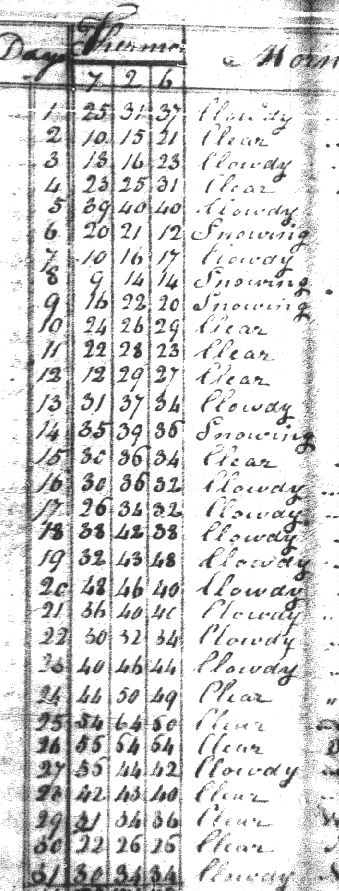 Days Thermo. Morn
7 2 6
1 25 31 37 Clowdy
2 10 15 21 Clear
3 13 16 23 Clowdy
4 23 25 31 Clear
5 39 40 40 Clowdy
6 20 21 12 Snowing
7 10 16 17 Clowdy
8 9 14 14 Snowing
9 16 22 20 Snowing
10 24 26 29 Clear
11 22 28 23 Clear
12 12 29 27 Clear
13 31 37 34 Clowdy
14 35 39 36 Snowing
15 30 36 34 Clear
16 30 36 32 Clowdy
17 26 34 32 Clowdy
18 38 42 38 Clowdy
19 32 43 48 Clowdy
20 48 46 40 Clowdy
21 36 40 40 Clowdy
22 30 32 34 Clowdy
23 40 46 44 Clowdy
24 44 50 49 Clear
25 54 64 60 Clear
26 55 64 54 Clear
27 36 44 42 Clowdy
28 42 43 40 Clear
29 21 34 36 Clear
30 22 26 26 Clear
31 30 34 34 Clowdy